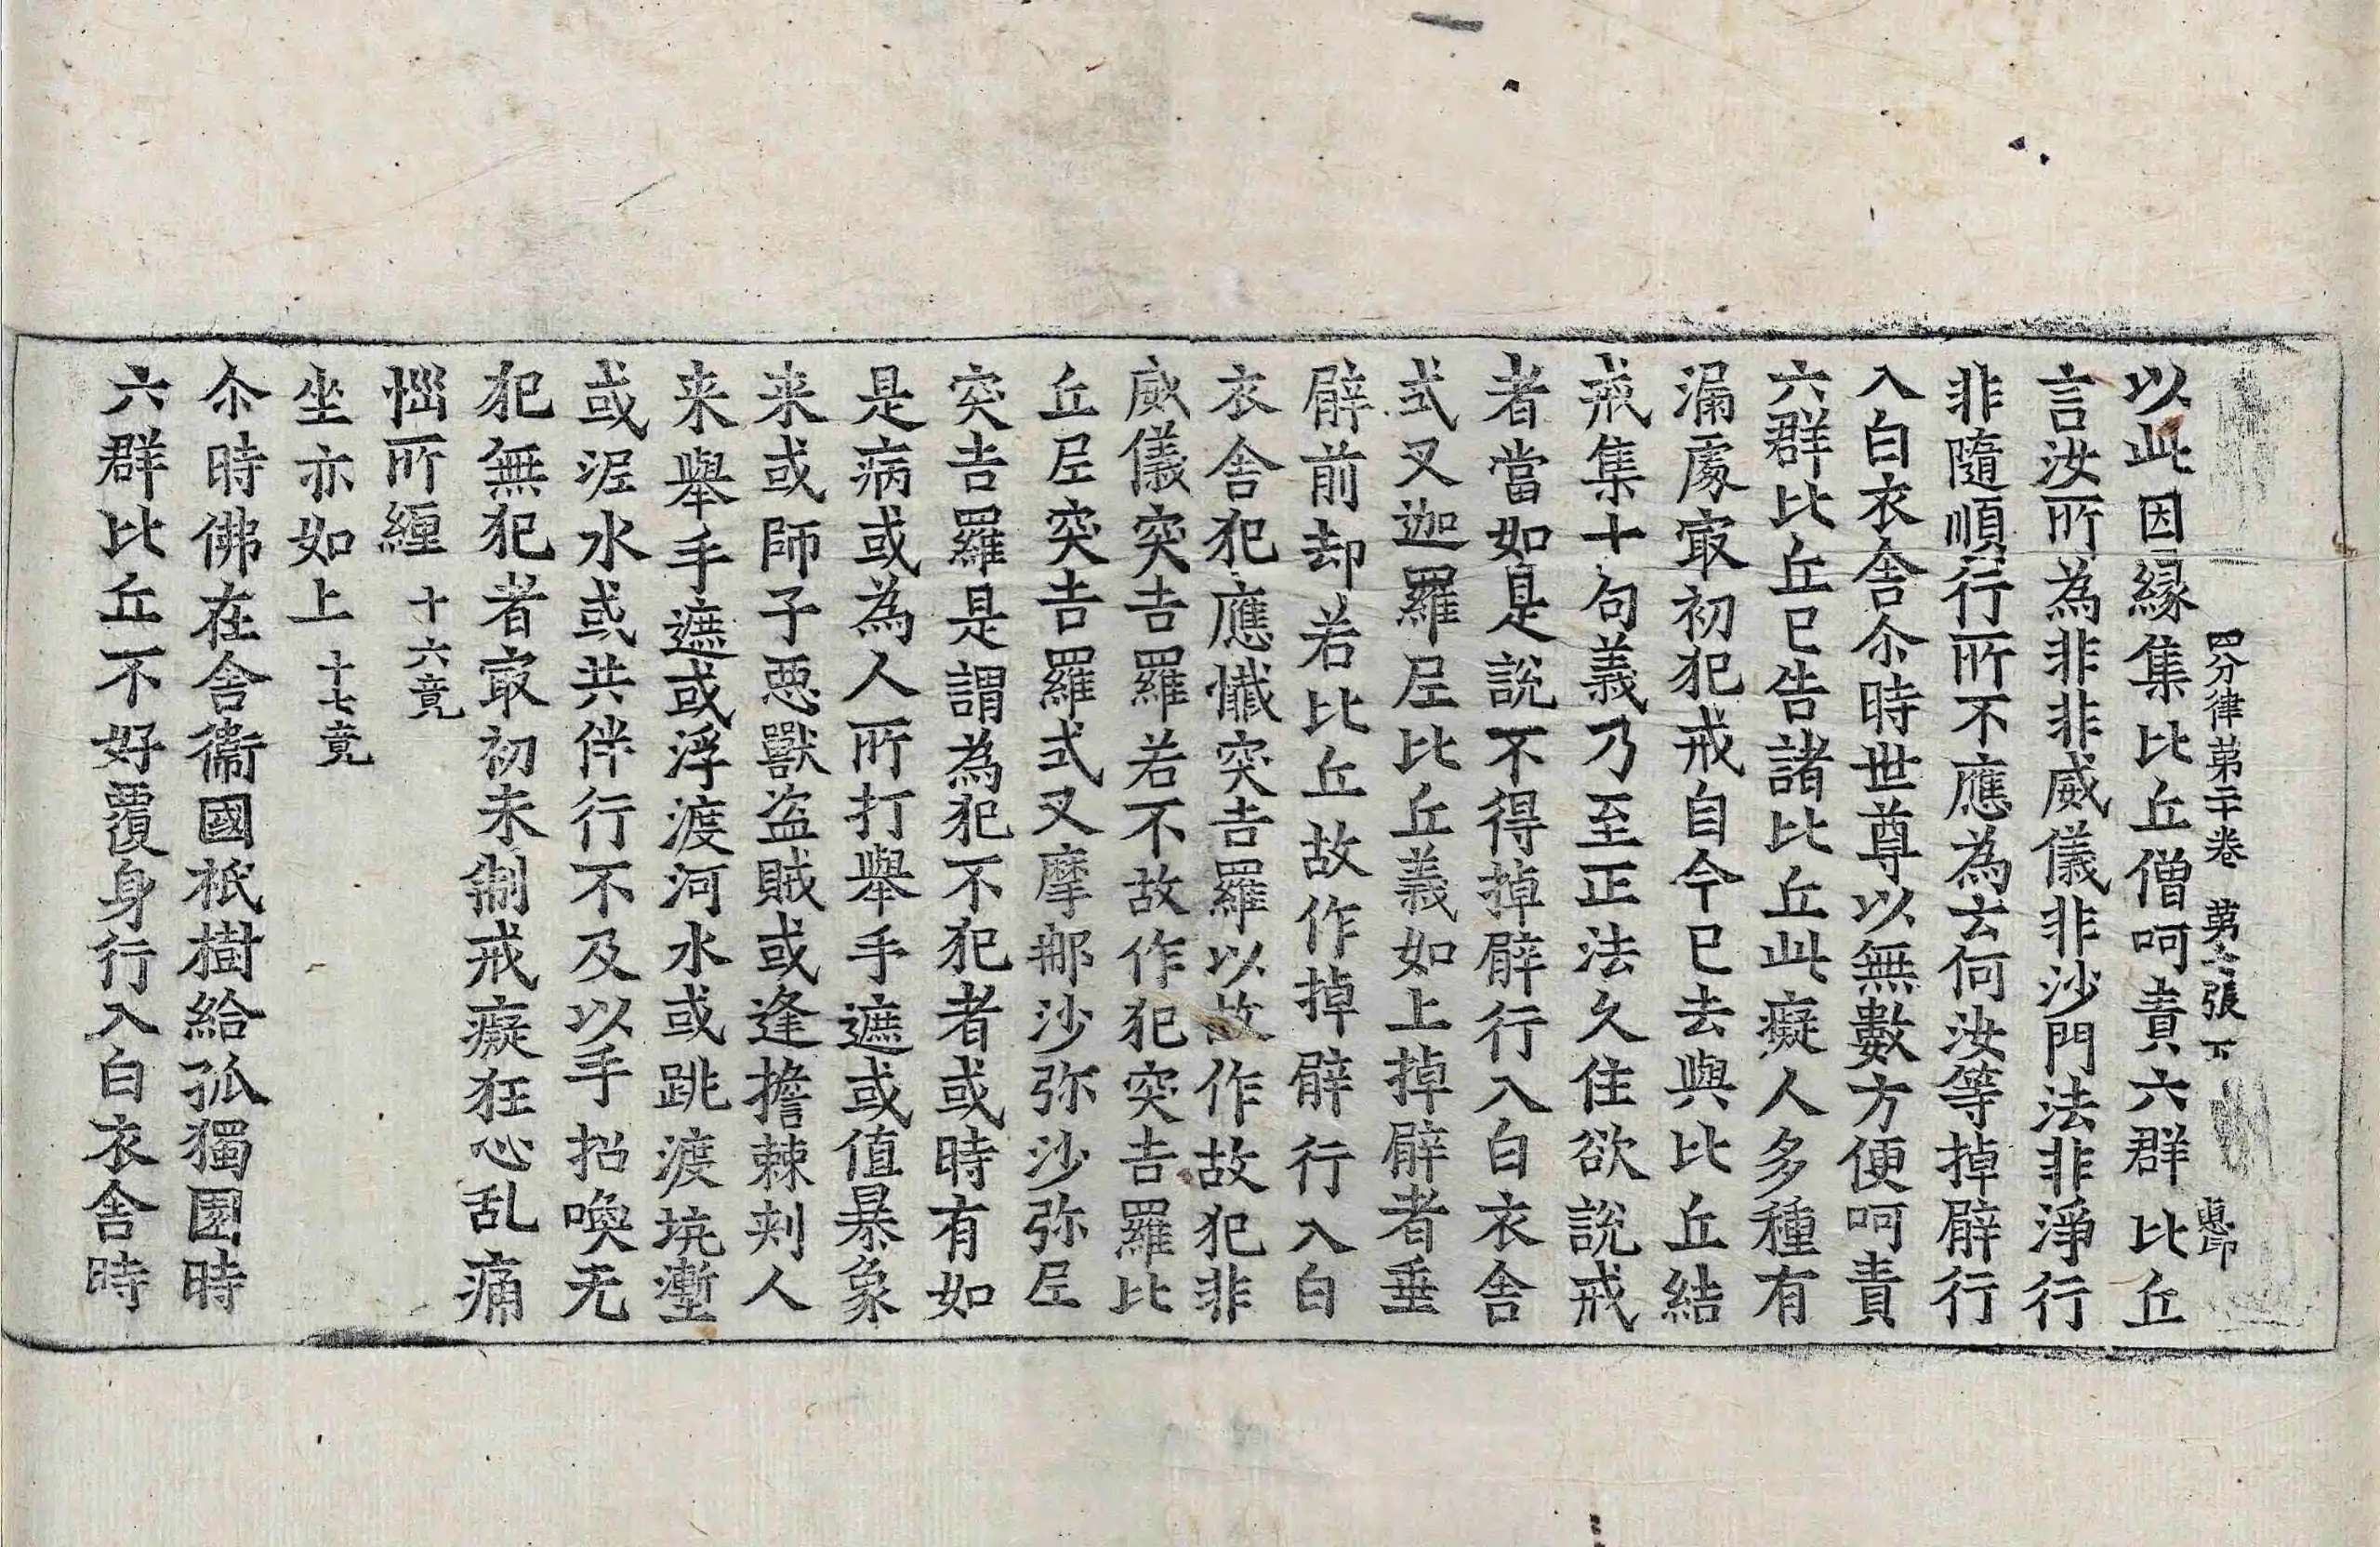 四分律第二十卷 第 張 下
以此因緣集比丘僧呵責六群比丘
言汝所為非非威儀非沙門法非淨行
非隨順行所不應為云何汝等掉臂行
入白衣舍尒時世尊以無數方便呵責
六群比丘已告諸比丘此癡人多種有
漏處㝡初犯戒自今已去與比丘結
戒集十句義乃至正法久住欲說戒
者當如是說不得掉臂行入白衣舍
式叉迦羅尼比丘義如上掉臂者垂
臂前却若比丘故作掉臂行入白
衣舍犯應懺突吉羅以故作故犯非
威儀突吉羅若不故作犯突吉羅比
丘尼突吉羅式叉摩那沙弥沙弥尼
突吉羅是謂為犯不犯者或時有如
是病或為人所打舉手遮或值暴象
来或師子惡獸盗賊或逢擔棘刾人
来舉手遮或浮渡河水或跳渡坑壍
或泥水或共伴行不及以手招喚无
犯無犯者㝡初未制戒癡狂心乱痛
惱所纏 十六竟
坐亦如上 十七竟
尒時佛在舍衞國祇樹給孤獨園時
六群比丘不好覆身行入白衣舍時